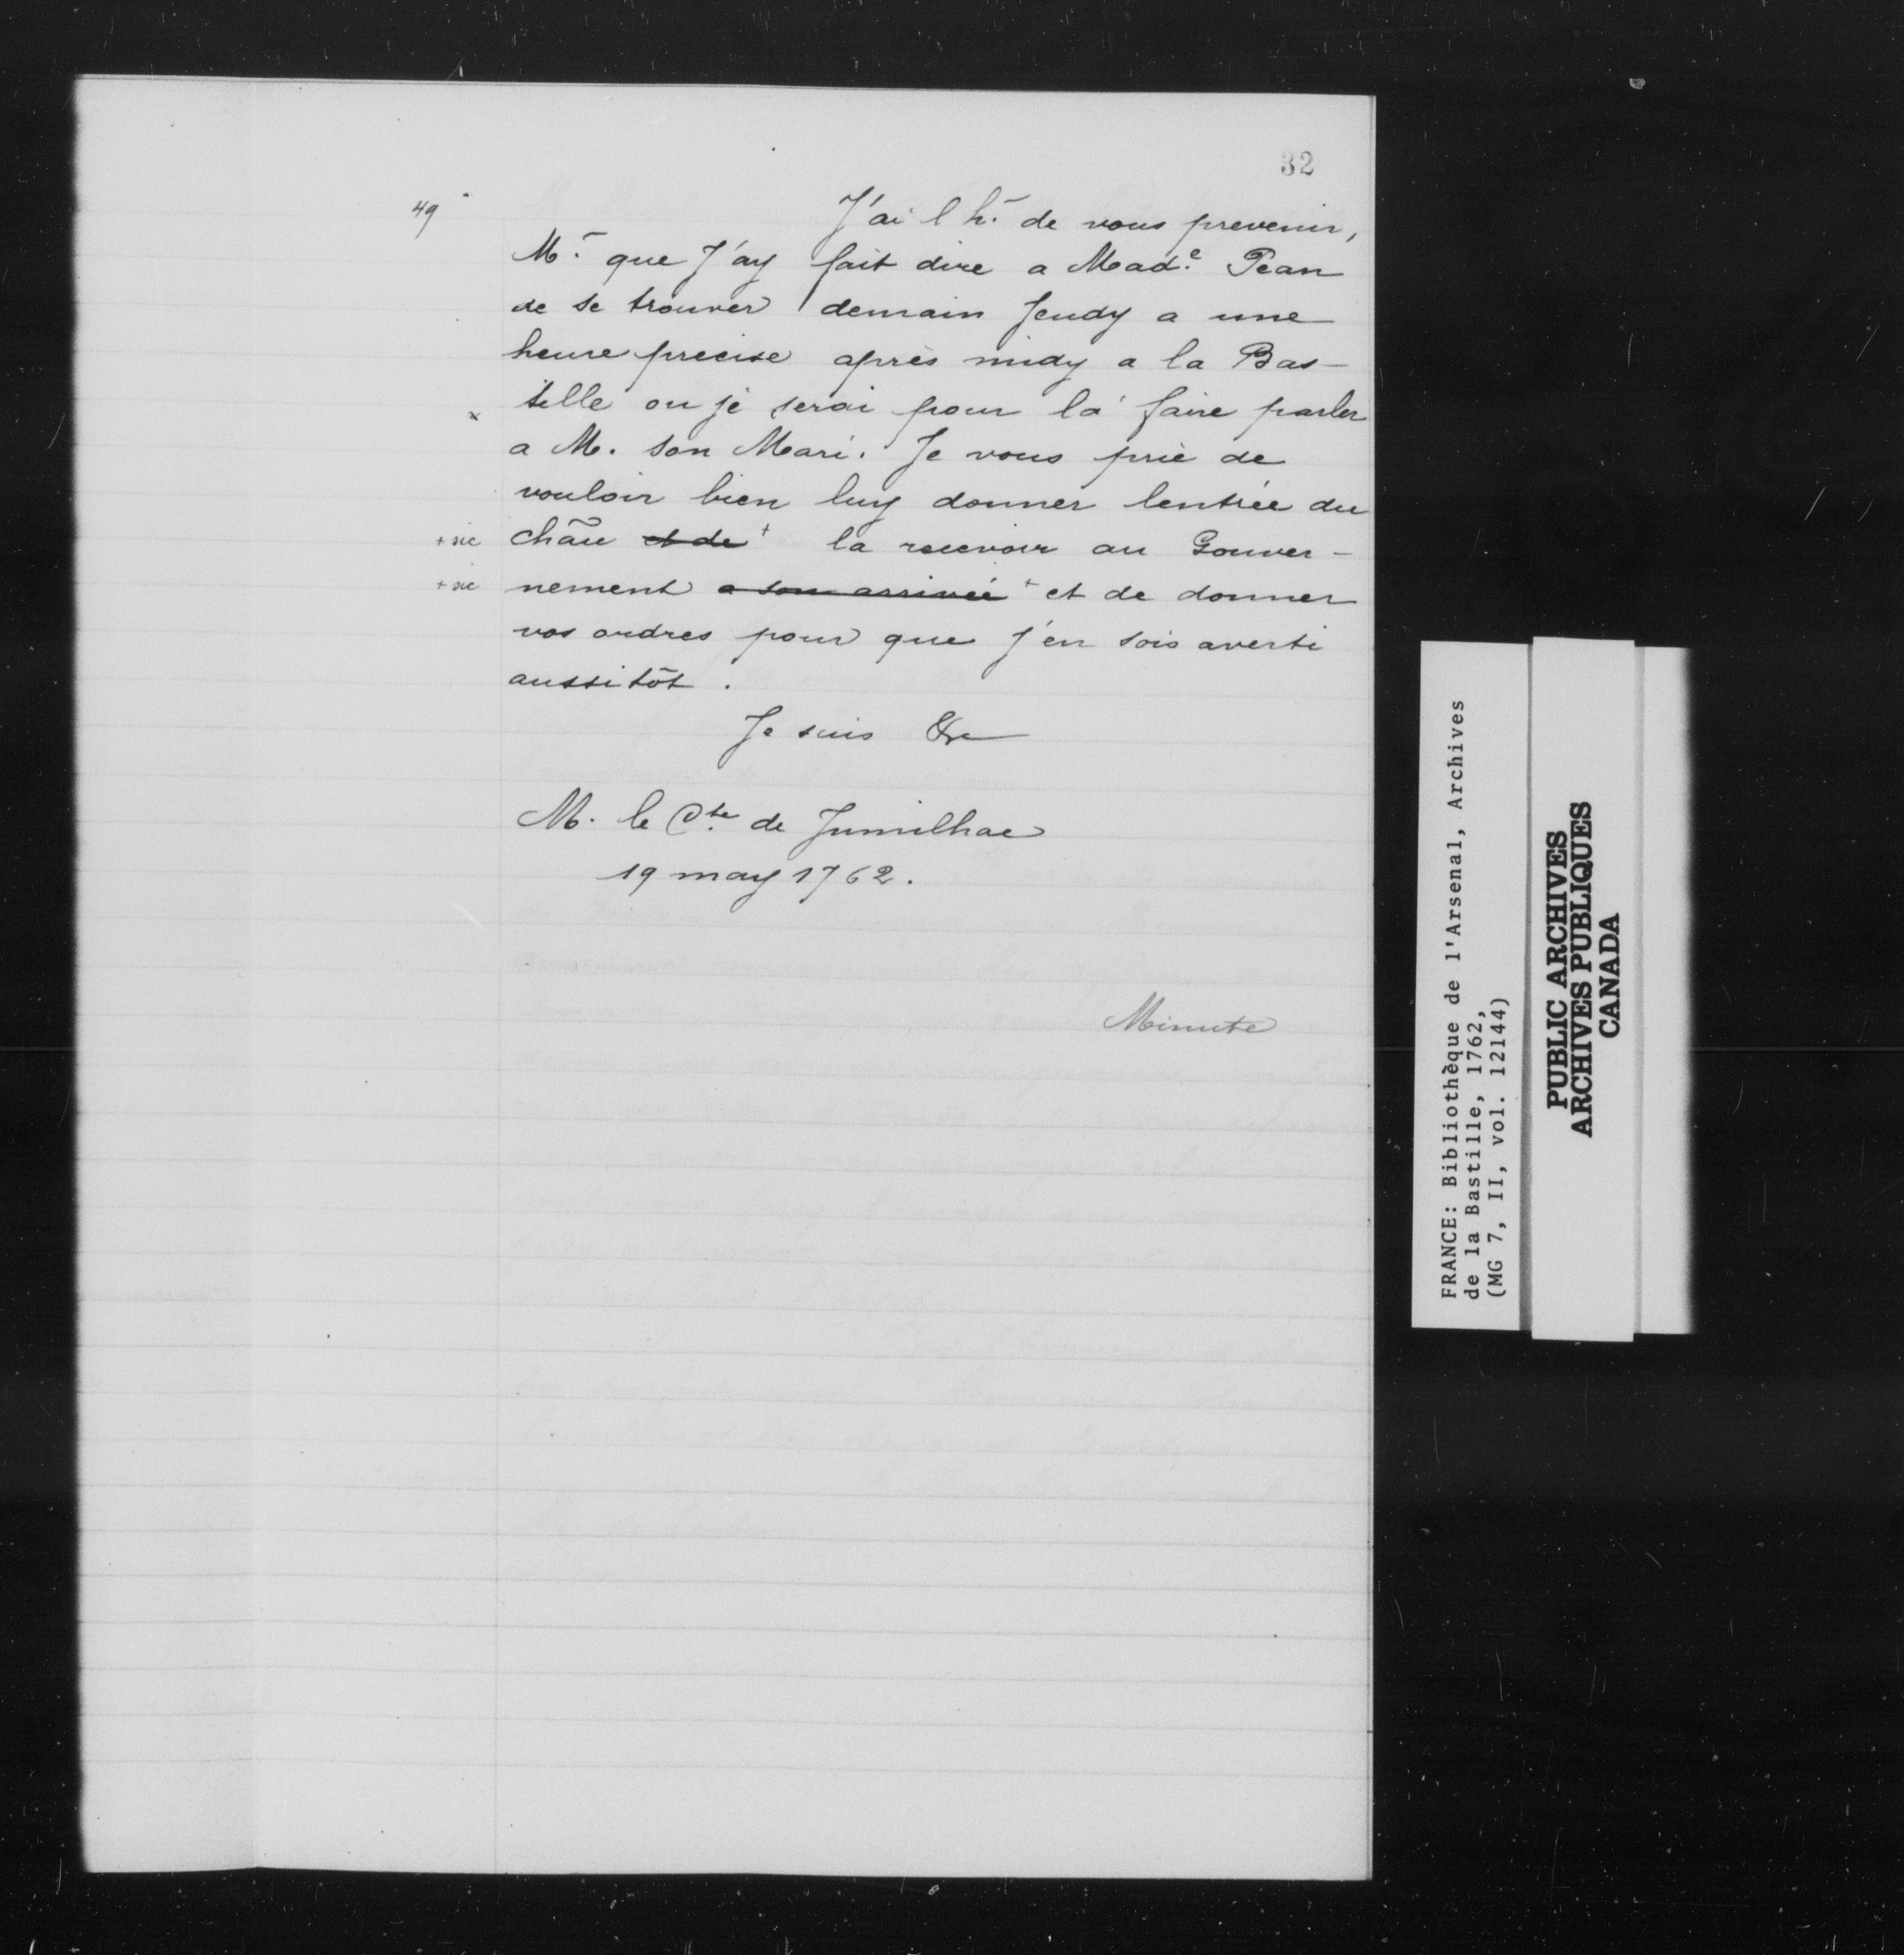 32
49
J'ai l h.r de vous prevenir,
M.r que J'ay fait dire a Mad.e Pean
de se trouver demain Jeudy a une
heure precise après midy a la Bas-
x tille ou je serai pour la faire parler
a M. son Mari. Je vous prie de
vouloir bien luy donner lentrée du
+ sic châu et de + la recevoir au Gouver-
+ sic nement a son arrivée + et de donner
vos ordres pour que J'en sois averti
aussitôt.
Je suis &c
M. le Cte de Jumilhac
19 may 1762.
Minute
FRANCE: Bibliothèque de l'Arsenal, Archives
de la Bastille, 1762,
(MG 7, II, vol. 12144)
PUBLIC ARCHIVES
ARCHIVES PUBLIQUES
CANADA